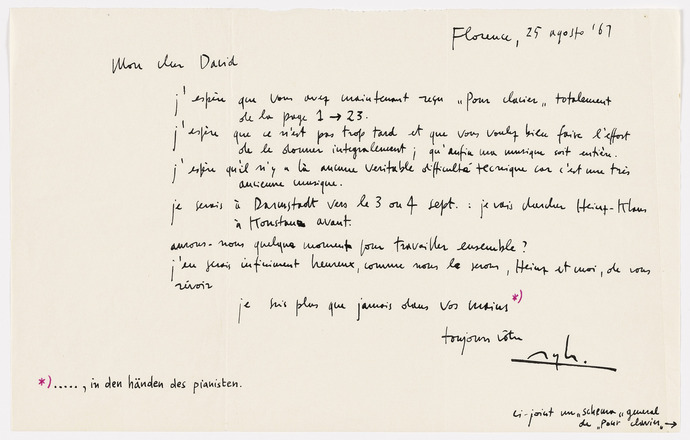 Florence, 25 agosto '61
Mon cher David
j'espère que vous avez maintenant reçu „Pour clavier„ totalement
de la page 1 → 23.
j'espère que ce n'est pas trop tard et que vous voulez bien faire l'effort
de le donner integralement ; qu'enfin ma musique soit entière.
j'espère qu'il n'y a là aucune veritable difficulté tecnique car c'est une très
ancienne musique.
je serais à Darmstadt vers le 3 ou 4 sept. : je vais chercher Heinz-Klaus
à Konstanz avant.
aurons-nous quelque moment pour travailler ensemble ?
j'en serais infiniment heureux, comme nous le serons, Heinz et moi, de vous
révoir
je suis plus que jamais dans vos mains *)
toujours vôtre
*)....., in den händen des pianisten.
ci-joint un „schema„ general
de „Pour clavier„ →